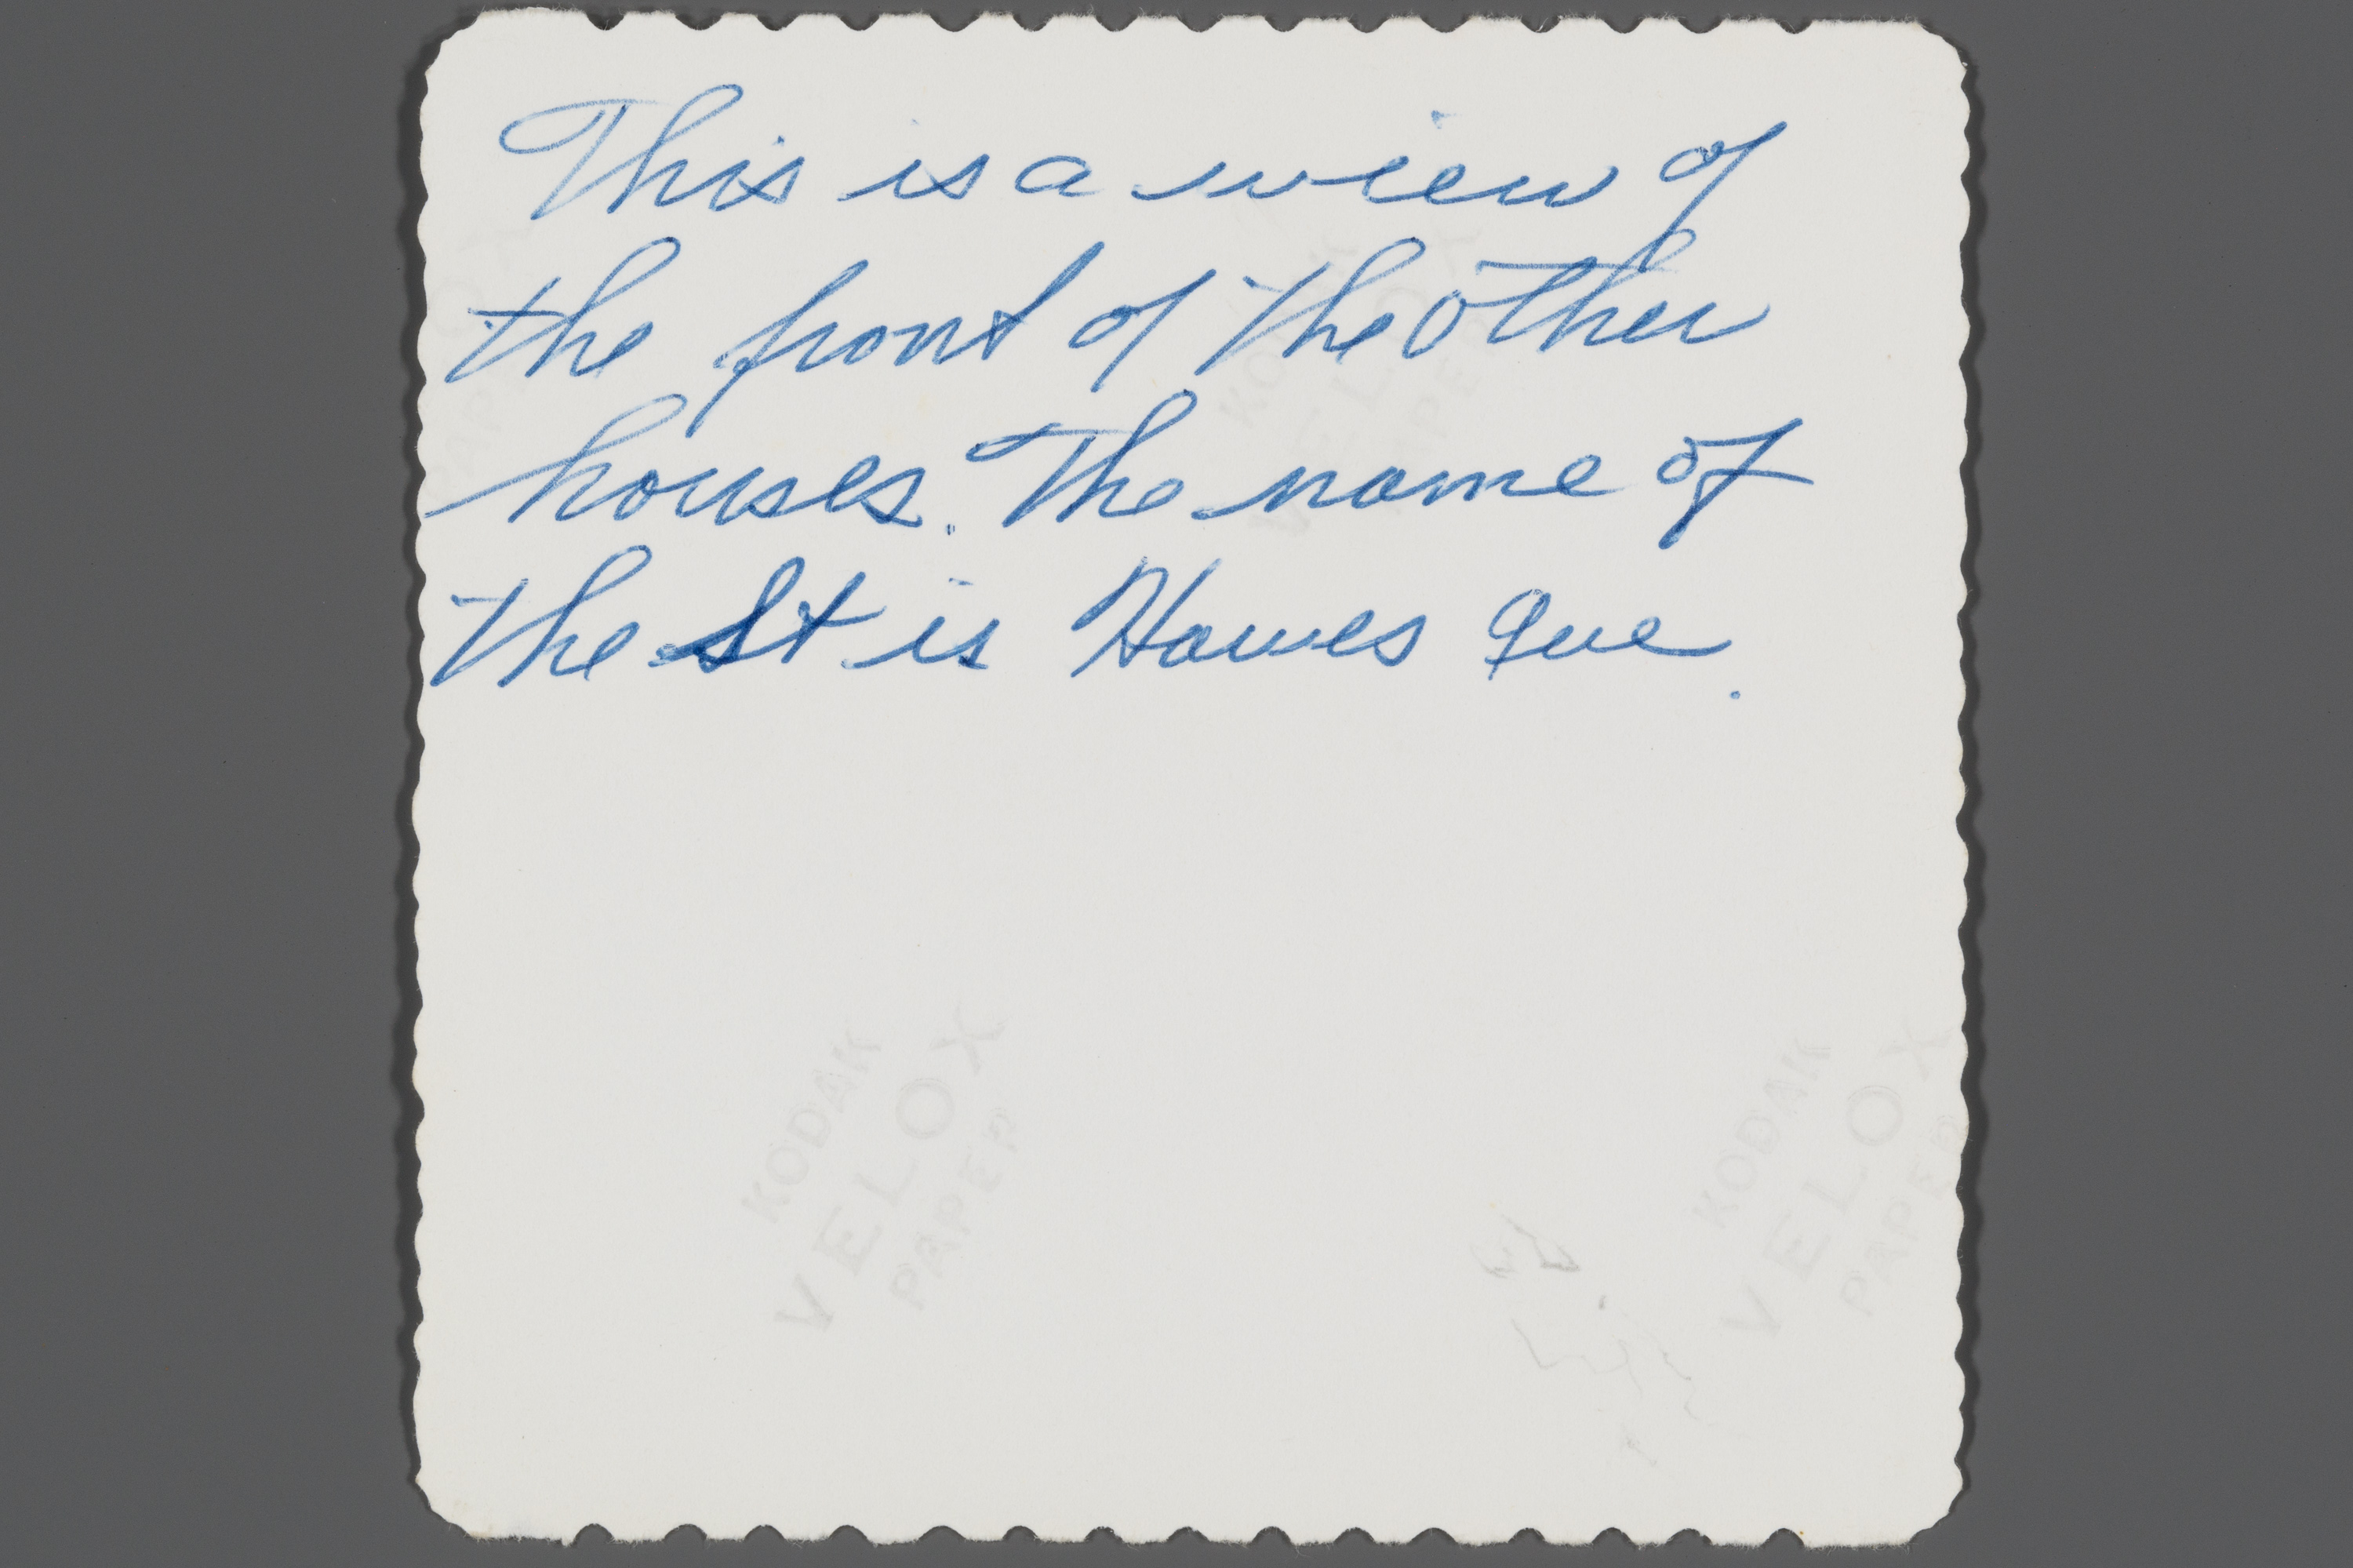 This is a view of
the front of the other
houses. The name of
the St is Hawes Ave.
KODAK
VELOX
PAPER
KODAK
VELOX
PAPER
KODAK
VELOX
PAPER